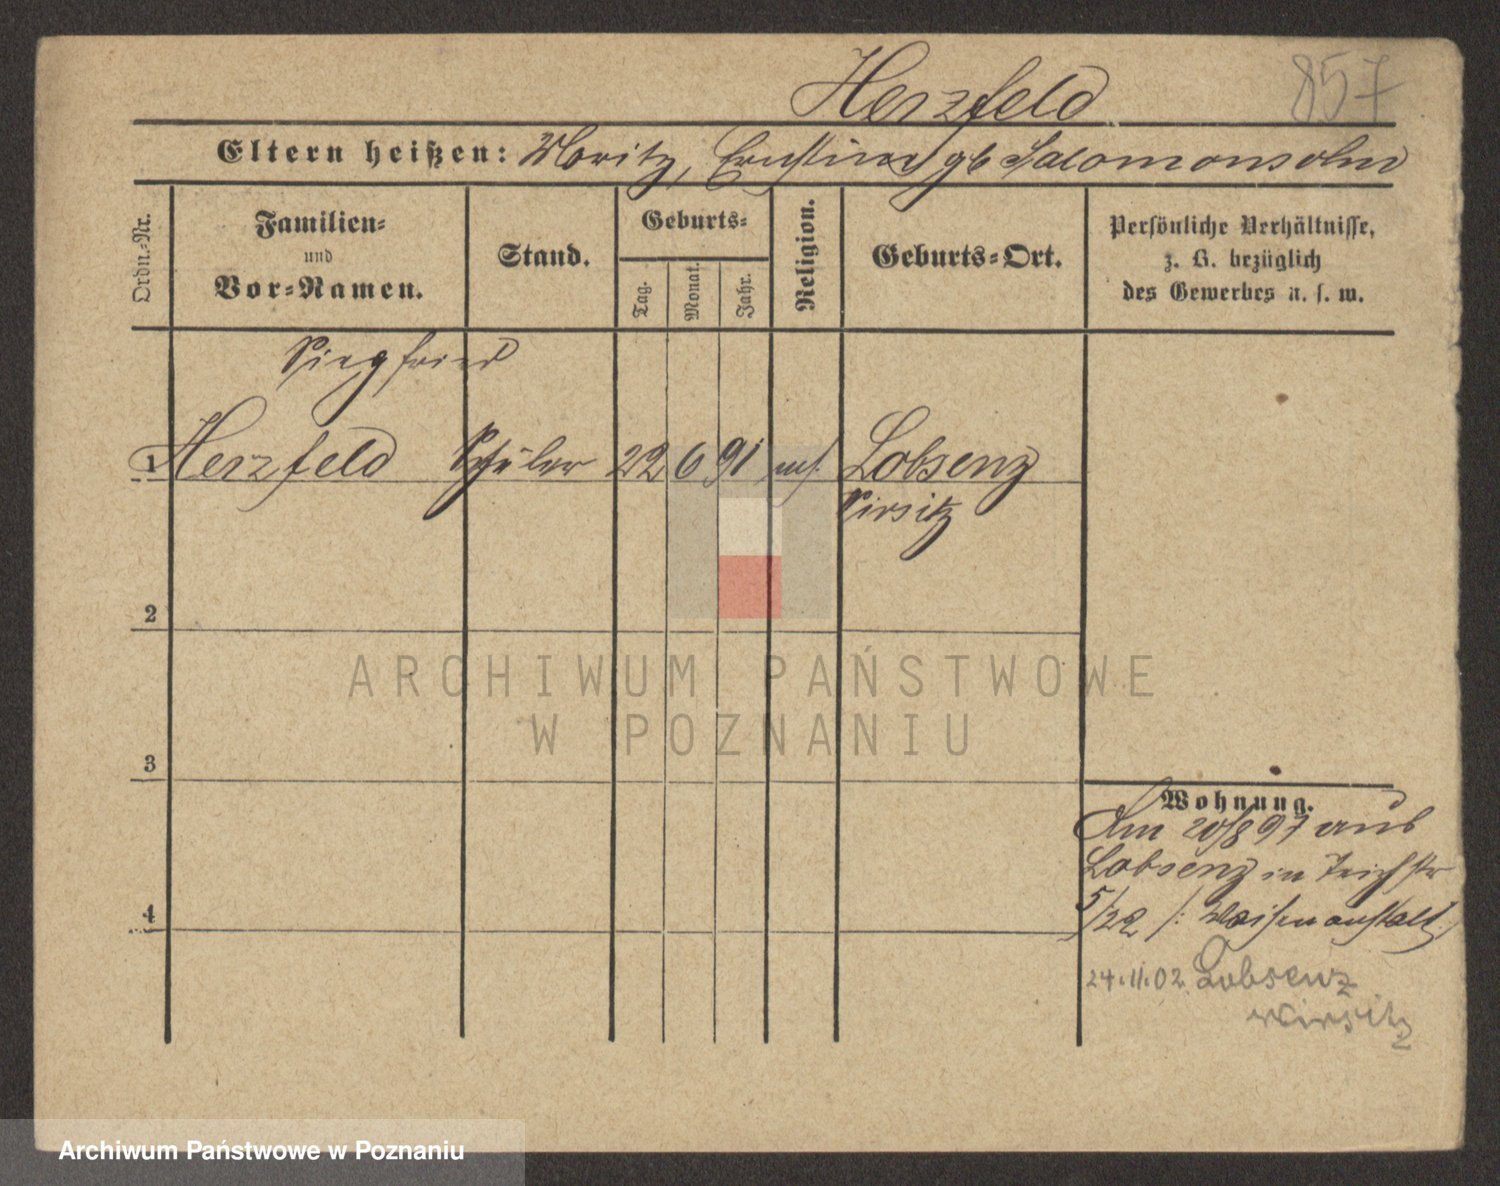 Herzfeld 857
Eltern heißen: Moritz, Ernstine gb Salomonsohn
Ordn.-Nr.
Familien-
und
Vor-Namen.
Stand.
Geburts-
Tag.
Monat.
Jahr.
Religion.
Geburts-Ort.
Persönliche Verhältnisse,
z. B. bezüglich
des Gewerbes u. s. w.
Siegfried
1 Herzfeld Schüler 22 6 91 mos. Lobsenz
Wirsitz
2
3
4
Wohnung.
Am 20/8 97 aus
Lobsenz in Teichstr
5/22 /: Waisenanstalt
24.11.02. Lobsenz
Wirsitz
ARCHIWUM PAŃSTWOWE
W POZNANIU
Archiwum Państwowe w Poznaniu